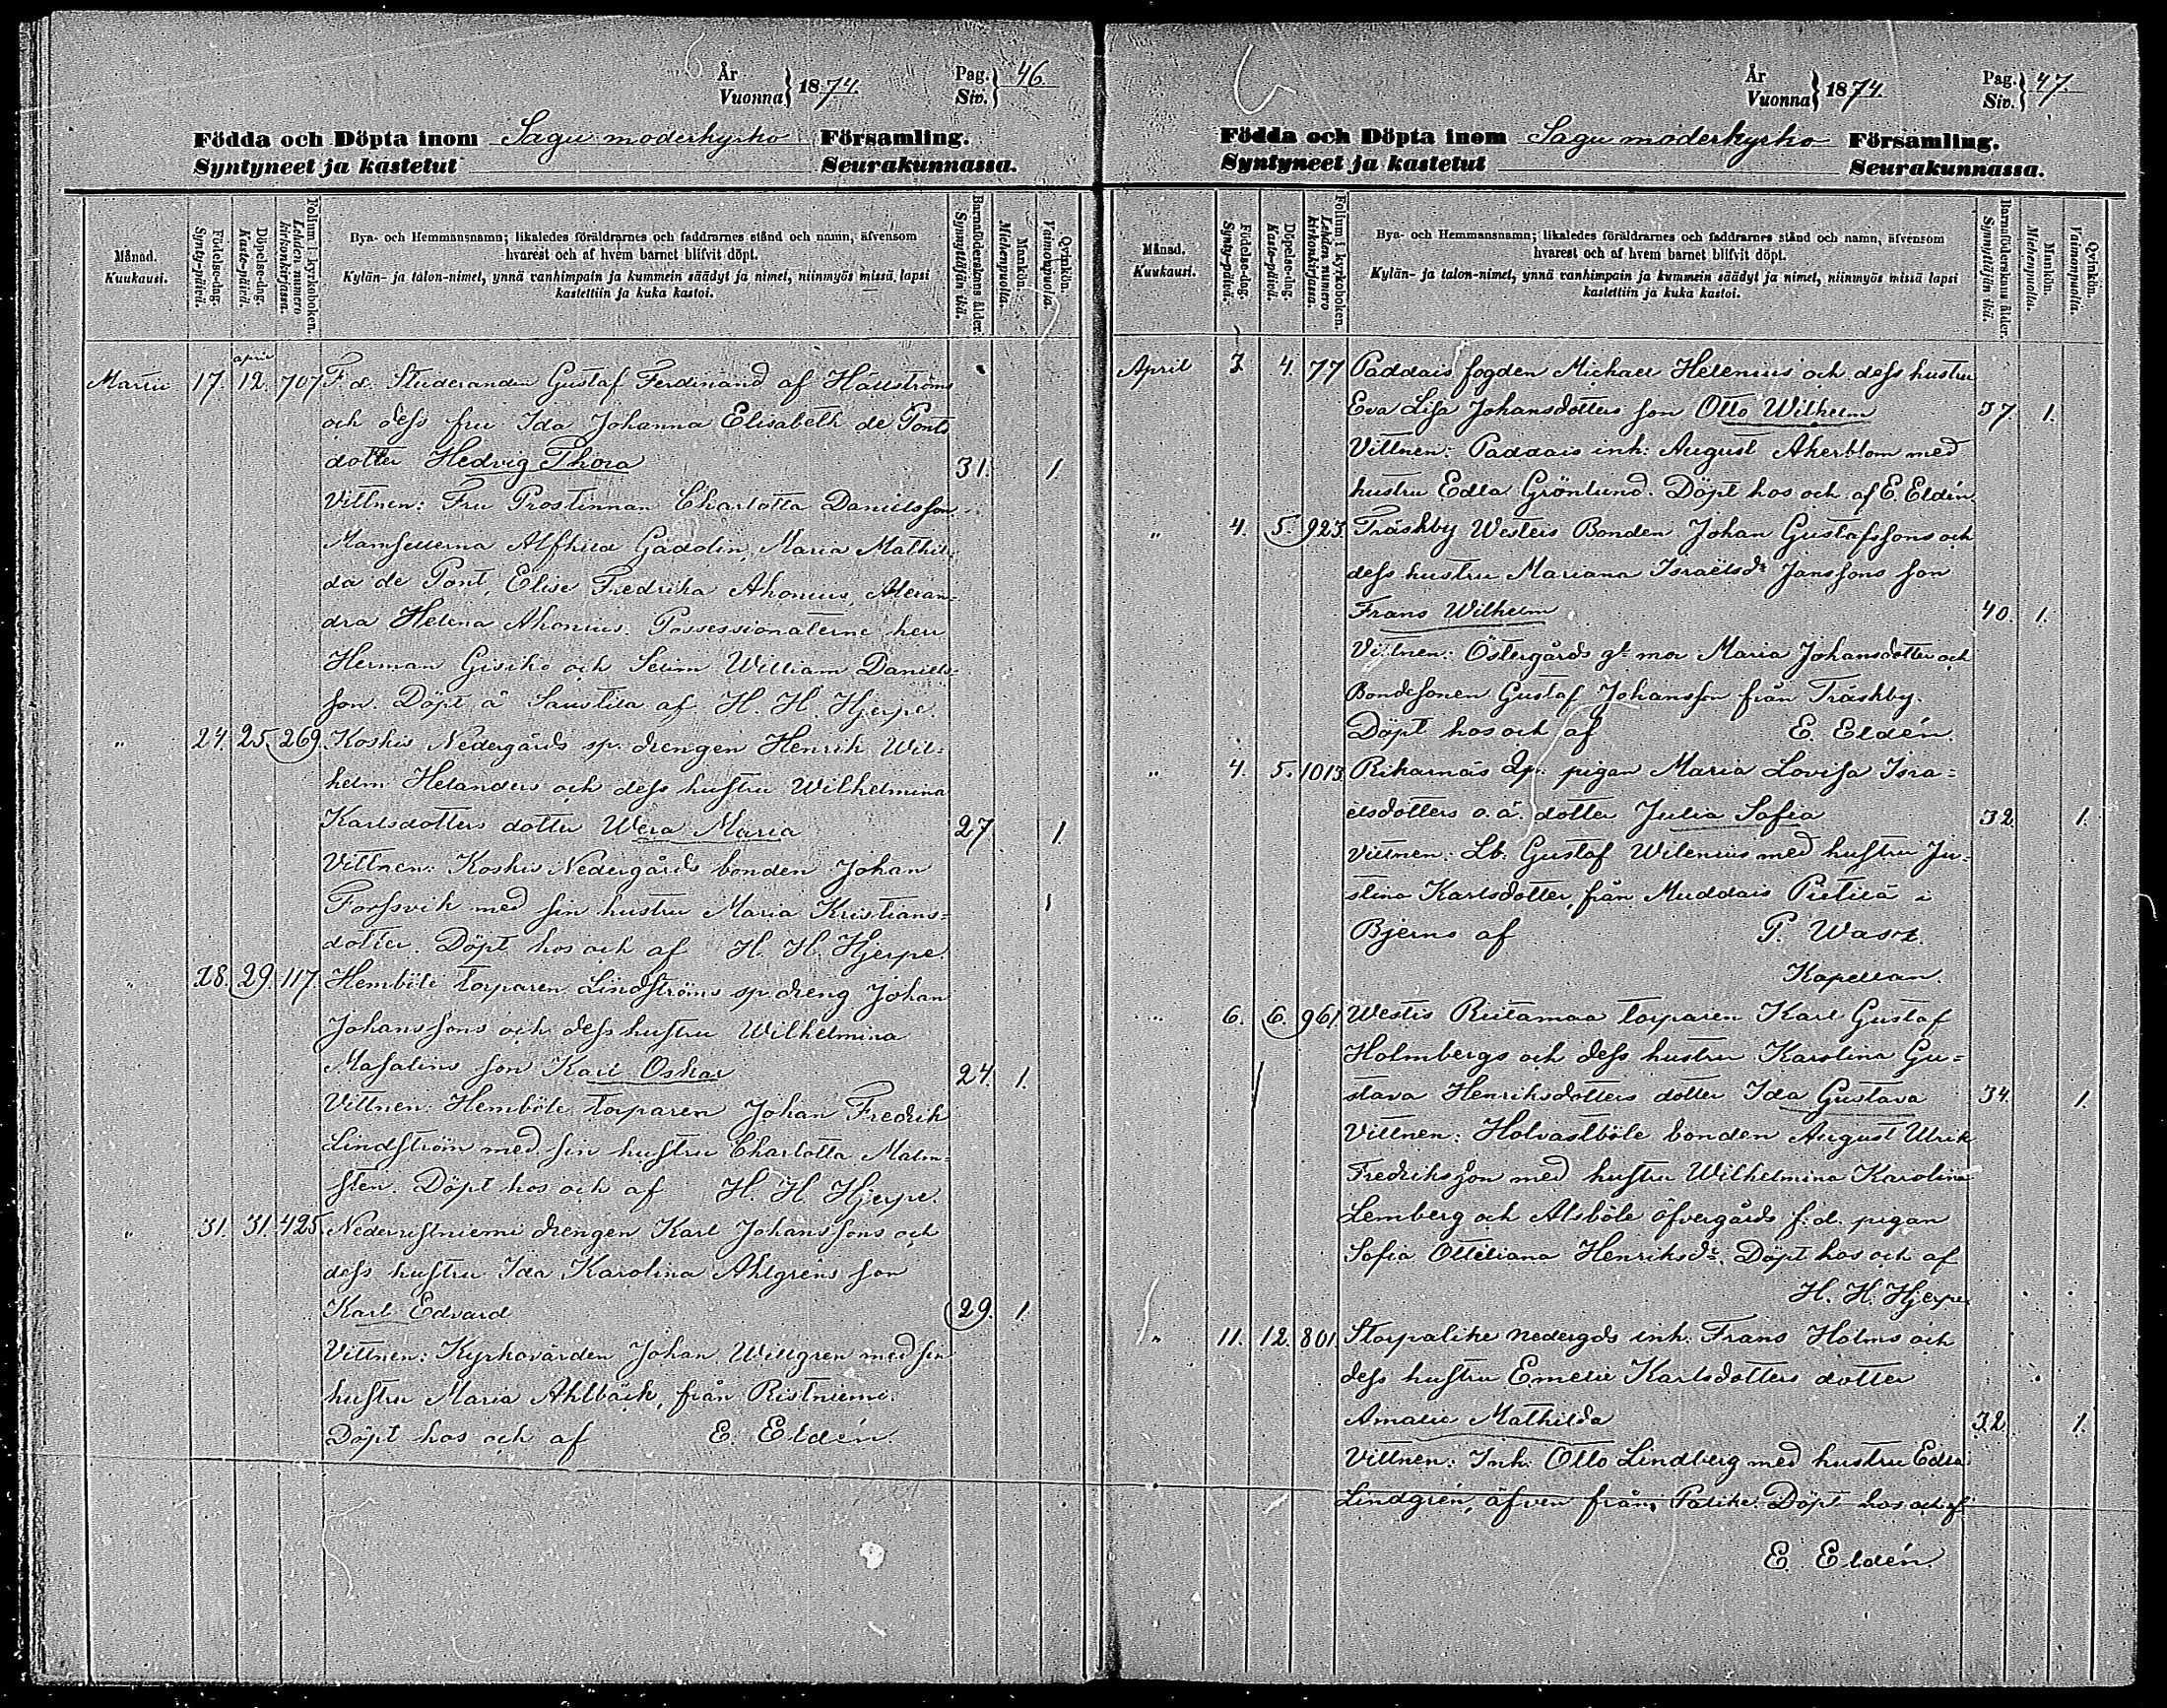 År
Vuonna} 1874.
Pag.
Siv.} 46.
Födda och Döpta inom Sagu moderkyrko Församling.
Syntyneet ja kastetut Seurakunnassa.
Månad.
Kuukausi.
Födelse-dag.
Synty-päivä.
Döpelse-dag.
Kasto-päivä.
Folium i kyrkoboken.
Lehden numero kirkonkirjassa.
Bya- och Hemmansnamn; likaledes föräldrarnes och faddrarnes stånd och namn, äfvensom
hvarest och af hvem barnet blifvit döpt.
Kylän- ja talon-nimet, ynnä vanhimpain ja kummein säädyt ja nimet, niinmyös missä lapsi
kastettiin ja kuka kastoi.
Barnaföderskans ålder.
Synnyttäjän ikä.
Mankön.
Miehenpuolia.
Qvinkön.
Vaimonpuolia.
april
Martii 17. 12. 707 F. d. Studeranden Gustaf Ferdinand af Hällströms
och dess fru Ida Johanna Elisabeth de Ponts
dotter Hedvig Thora 31. 1
Vittnen: Fru Prostinnan Charlotta Danielsson
Mamsellerna Alfhild Gadolin, Maria Mathil-
da de Pont, Elise Fredrika Ahonius, Alexan-
dra Helena Ahonius. Possessionaterne herr
Herman Gisiko och Selim William Daniels-
son. Döpt å Saustila af H. H. Hjerpe.
" 24. 25. 269. Koskis Nedergårds sp. drengen Henrik Wil-
helm Helanders och dess hustru Wilhelmina
Karlsdotters dotter Wera Maria 27. 1.
Vittnen: Koskis Nedergårds bonden Johan
Forssvik med sin hustru Maria Kristians-
dotter. Döpt hos och af H. H. Hjerpe.
" 28. 29. 117. Hemböle torparen Lindströms sp. dreng Johan
Johanssons och dess hustru Wilhelmina
Masalins son Karl Oskar 24. 1.
Vittnen: Hemböle torparen Johan Fredrik
Lindström med sin hustru Charlotta Malm-
sten. Döpt hos och af H. H. Hjerpe.
" 31. 31. 425. Nederristniemi drengen Karl Johanssons och
dess hustru Ida Karolina Ahlgrens son
Karl Edvard 29. 1.
Vittnen: Kyrkovärden Johan Willgren med sin
hustru Maria Ahlbäck, från Ristniemi.
Döpt hos och af E. Eldén
År
Vuonna} 1874.
Pag.
Siv.} 47.
Födda och Döpta inom Sagu moderkyrko Församling.
Syntyneet ja kastetut Seurakunnassa.
Månad.
Kuukausi.
Födelse-dag.
Synty-päivä.
Döpelse-dag.
Kasto-päivä.
Folium i kyrkoboken.
Lehden numero kirkonkirjassa.
Bya- och Hemmansnamn; likaledes föräldrarnes och faddrarnes stånd och namn, äfvensom
hvarest och af hvem barnet blifvit döpt.
Kylän- ja talon-nimet, ynnä vanhimpain ja kummein säädyt ja nimet, niinmyös missä lapsi
kastettiin ja kuka kastoi.
Barnaföderskans ålder.
Synnyttäjän ikä.
Mankön.
Miehenpuolia.
Qvinkön.
Vaimonpuolia.
April 4. 77 Paddais fogden Michael Helenius och dess hustru
Eva Lisa Johansdotters son Otto Wilhelm 37. 1.
Vittnen: Paddais inh: August Åkerblom med
hustru Edla Grönlund. Döpt hos och af E. Eldén.
" 4. 5. 923. Träskby Westers Bonden Johan Gustafssons och
dess hustru Mariana Israëlsdr Janssons son
Frans Wilhelm 40. 1.
Vittnen: Östergårds gl. mor Maria Johansdotter och
Bondesonen Gustaf Johansson från Träskby.
Döpt hos och af E. Eldén.
" 4. 5. 1013 Rikarnäs Qp: pigan Maria Lovisa Isra-
elsdotters o. ä. dotter Julia Sofia 32. 1.
Vittnen: Lb: Gustaf Wilenius med hustru Ju-
stina Karlsdotter, från Muddais Pietilä i
Bjerno af P. Wasz.
Kapellan.
" 6. 6. 961. Westis Riitamaa torparen Karl Gustaf
Holmbergs och dess hustru Karolina Gu-
stava Henriksdotters dotter Ida Gustava 34. 1.
Vittnen: Holvastböle bonden August Ulrik
Fredriksson med hustru Wilhelmina Karolina
Lemberg och Alsböle öfvergårds f: d. pigan
Sofia Otteliana Henriksdr. Döpt hos och af
H. H. Hjerpe
" 11. 12. 801. Storpalike nedergds inh. Frans Holms och
dess hustru Emelie Karlsdotters dotter
Amalie Mathilda 32. 1.
Vittnen: Inh: Otto Lindberg med hustru Edla
Lindgrén, äfven från Palike. Döpt hos och af
E. Eldén.